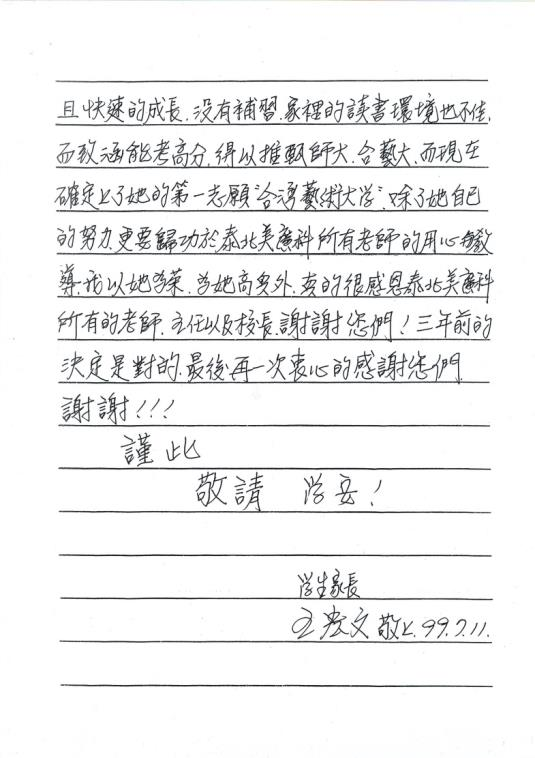 且快速的成長.沒有補習.家裡的讀書環境也不佳.
而致涵能考高分.得以推甄師大.台藝大.而現在
確定上了她的第一志願"台灣藝術大学".除了她自己
的努力.更要歸功於泰北美廣科所有老師的用心教
導.我以她為榮.為她高興外.真的很感恩泰北美廣科
所有的老師.主任以及校長.謝謝您們!三年前的
決定是對的.最後再一次衷心的感謝您們
謝謝!!!
謹此
敬請 学安!
学生家長
王宏文敬上.99.7.11.